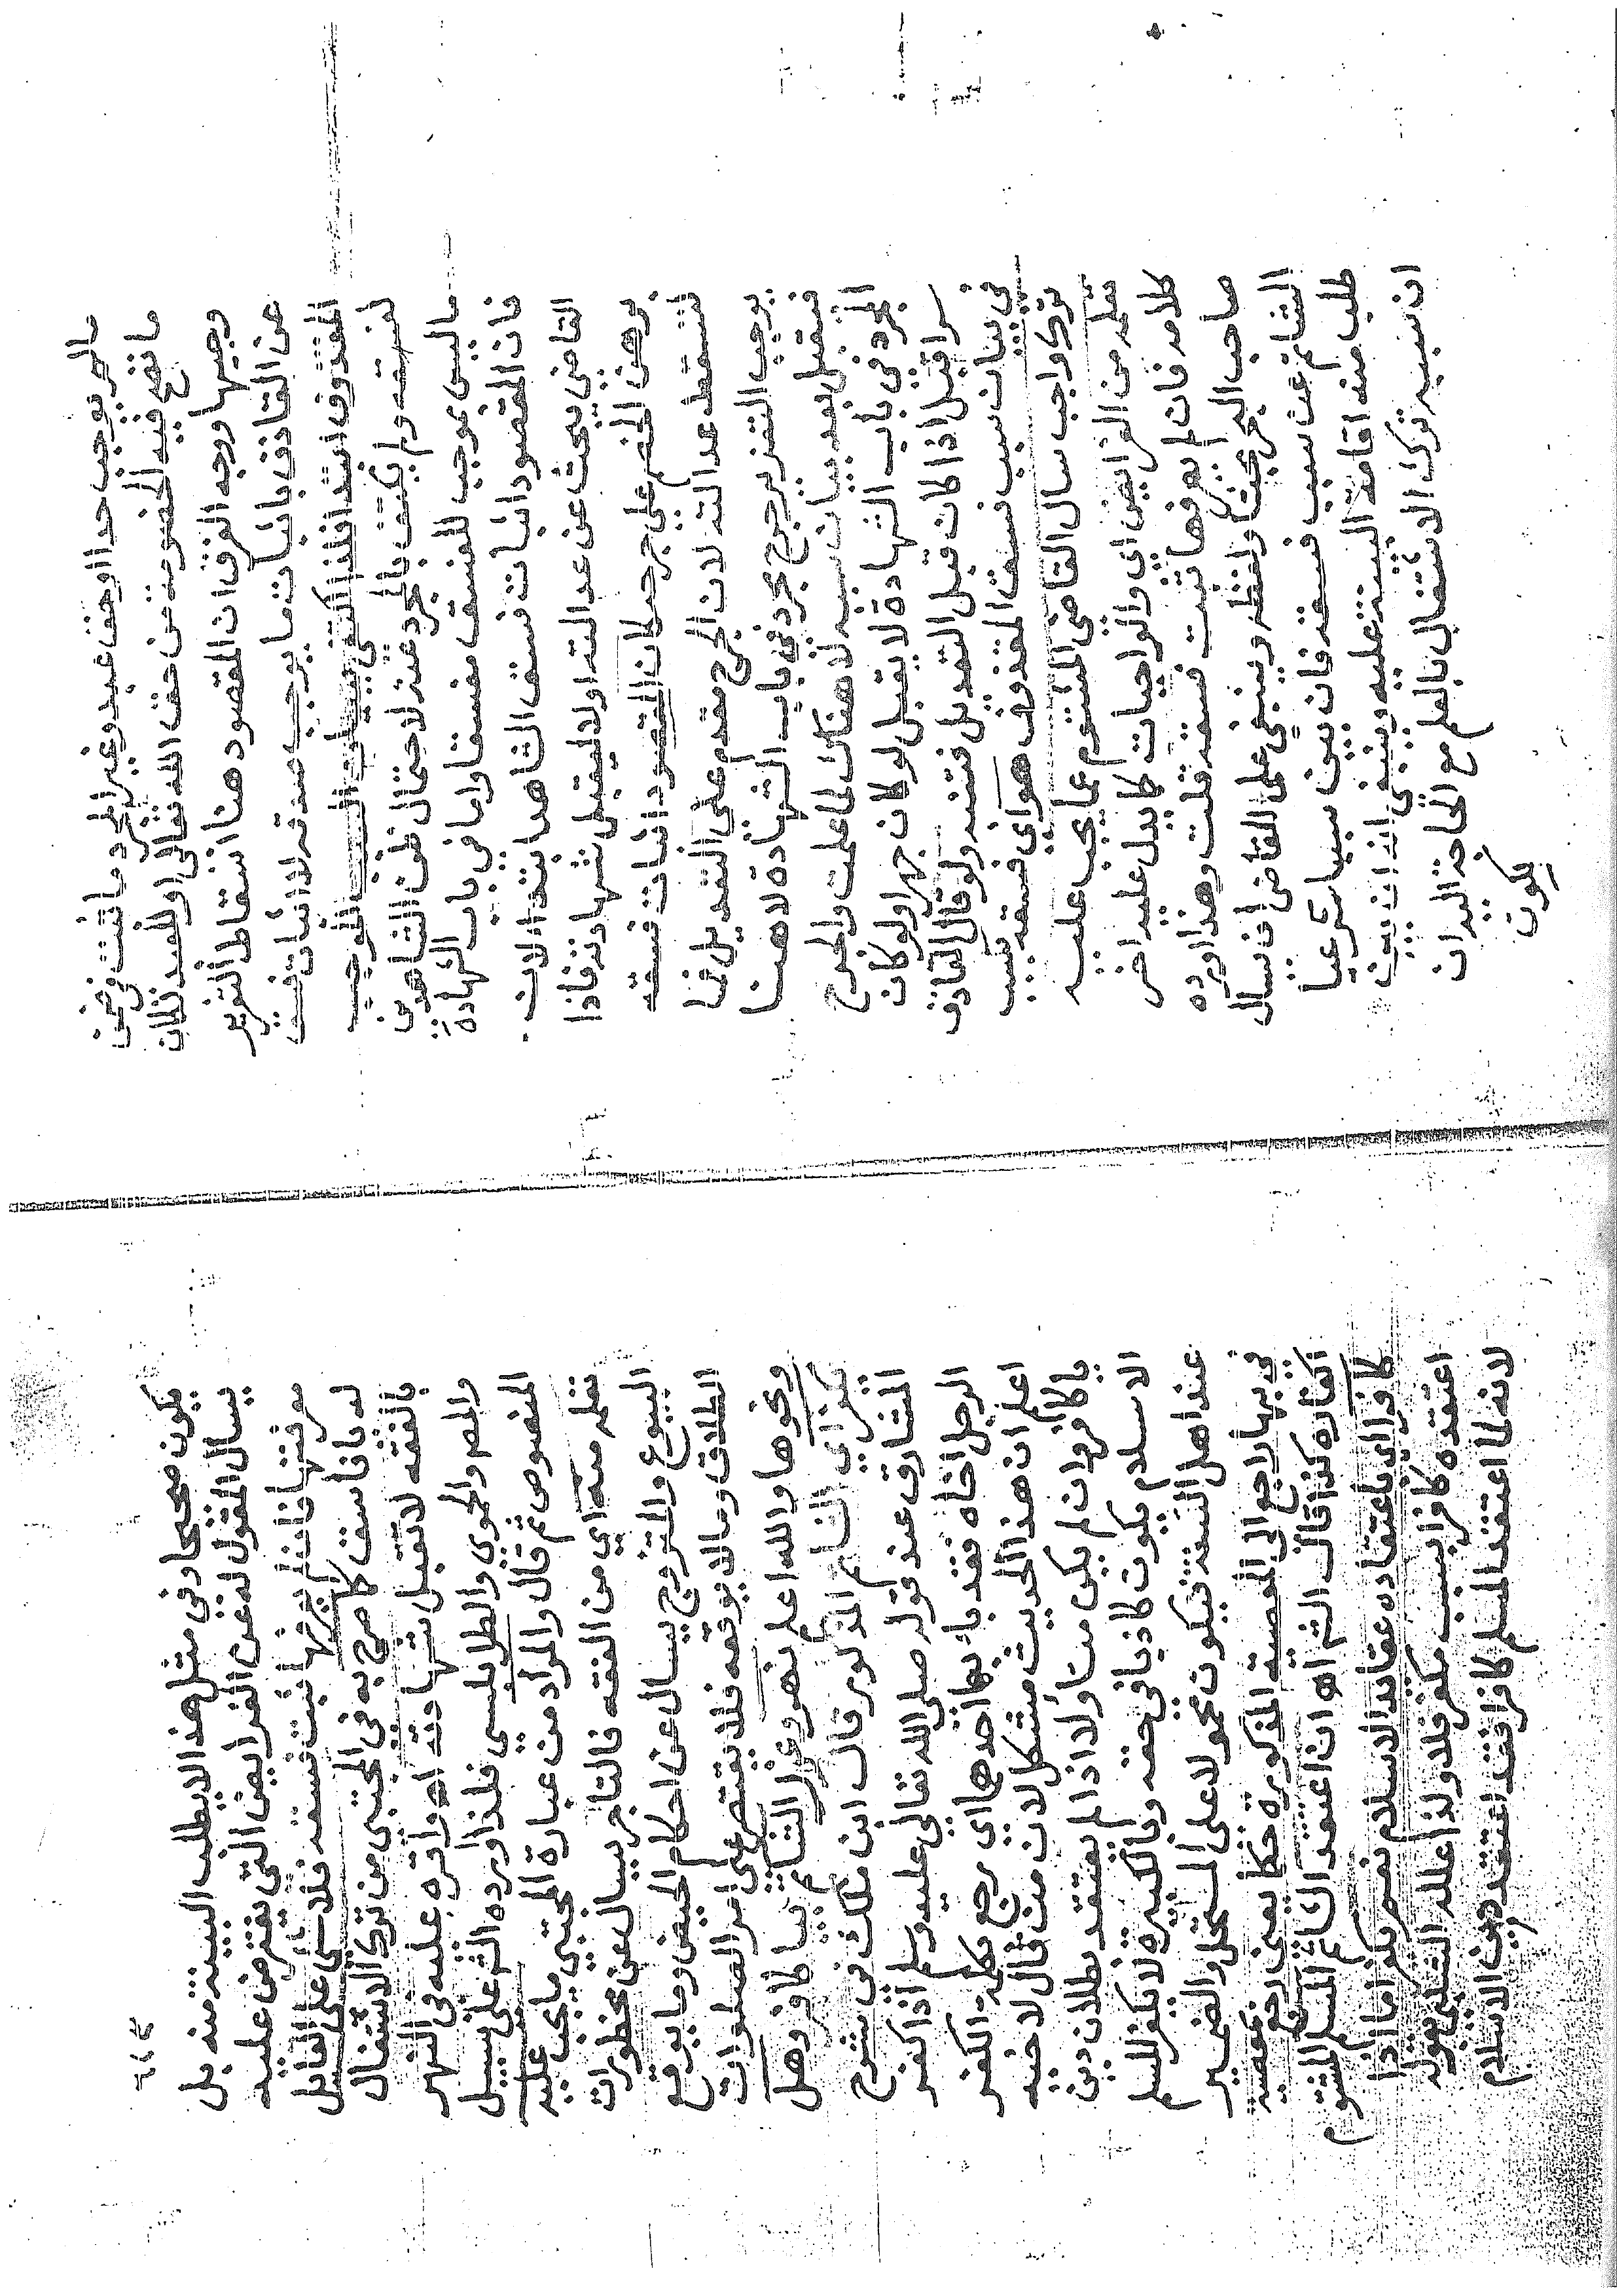 مالم يوجب حدا او حق عبد وغير المجرد ما اثبت في ضمن
ما تقع فيه الخصومة من حق الله تعالى او للعبد فكان
وجيها ووجه الفرق ان المقصود هنا اسقاط التعزير
عن القاذف باثبات ما يوجب صدقه لاثبات فسق
المقذوف ابتداء فلذا اكتفى ببيان السبب الموجب
لفسقه ولم يكتف بالمجرد عنه لاحتمال ظن الشاهدين
ماليس بموجب للفسق مفسقا واما في باب الشهادة
فان المقصود اثبات فسق الشاهد ابتداء لان
القاضي يبحث عن عدالته اولا ليقبل شهادته فاذا
برهن الخصم على جرحه كان المقصود اثبات فسقه
لتسقط عدالته لان الجرح مقدم على التعديل فما
يوجب التعزير جرح مجرد في باب الشهادة لا هنا
فتقبل بعد بيان سببه لا هناك لما علمت والجرح
المجرد في باب الشهادة لا يقبل لو كان جهرا ولو كان
سرا قبل اذا كان قبل التعديل فتنبه ولو قال القاذف
في بيان سبب فسق المقذوف هو اي فسقه بسبب
ترك واجب سال القاضي المشتوم عما يجب عليه
تعلمه من الفرايض اي والواجبات كما يدل عليه اخر
كلامه فان لم يعرفها ثبت فسقه قلت وهذا اورده
صاحب البحر بحثا ولفظه وينبغي على القاضي ان يسال
الشاتم عن سبب فسقه فان بين سببا شرعيا
طلب منه اقامة البينة عليه وينبغي انه ان بين
ان سببه ترك الاشتغال بالعلم مع الحاجة اليه ان
يكون
٢١٤
يكون صحيحا وفي مثل هذا لا يطلب البينة منه بل
يسال المقول له عن الفرايض التي تفترض عليه
معرفتها فان لم يعرفها ثبت فسقه فلا شي على القايل
له يا فاسق كما صرح به في المجتبى من ترك الاشتغال
بالفقه لا تقبل شهادته اه واقره عليه في النهر
والمص والحموي والطرابلسي فلذا اورده الشر على سبيل
المنصوص ثم قال والمراد من عبارة المجتبى ما يجب عليه
تعلمه منه اي من الفقه فالتاجر يسال عن محظورات
البيوع والمتزوج يسال عن احكام الحيض وما يوقع
الطلاق وما لا يوقعه فلا يقتصر على امر الصلوات
ونحوها والله اعلم نصر وعزر الشاتم بيا كافر وهل
يكفر اي الشاتم المذكور قال ابن ملك في شرح
المشارق عند قوله صلى الله تعالى عليه وسلم اذا كفر
الرجل اخاه فقد باء بها احدهما اي رجع بكلمة الكفر
اعلم ان هذا الحديث مشكل لان من قال لاخيه
يا كافر وان لم يكن متأولا اذا لم يعتقد بطلان دين
الاسلام يكون كاذبا في حقه وبالكبيرة لا يكفر المسلم
عند اهل السنة فيكون محمولا على المستحل والضمير
في بها راجع الى المعصية المذكورة حكما يعني رجع بمعصية
اكفاره كذا قال الشر اه ان اعتقد الشاتم المسلم المشتوم
كافرا اي باعتقاده عقائد الاسلام نعم يكفر اما اذا
اعتقده كافرا بسبب مكفر فلا ولذا علله الشلبي بقوله
لانه لما اعتقد المسلم كافرا فقد اعتقد دين الاسلام